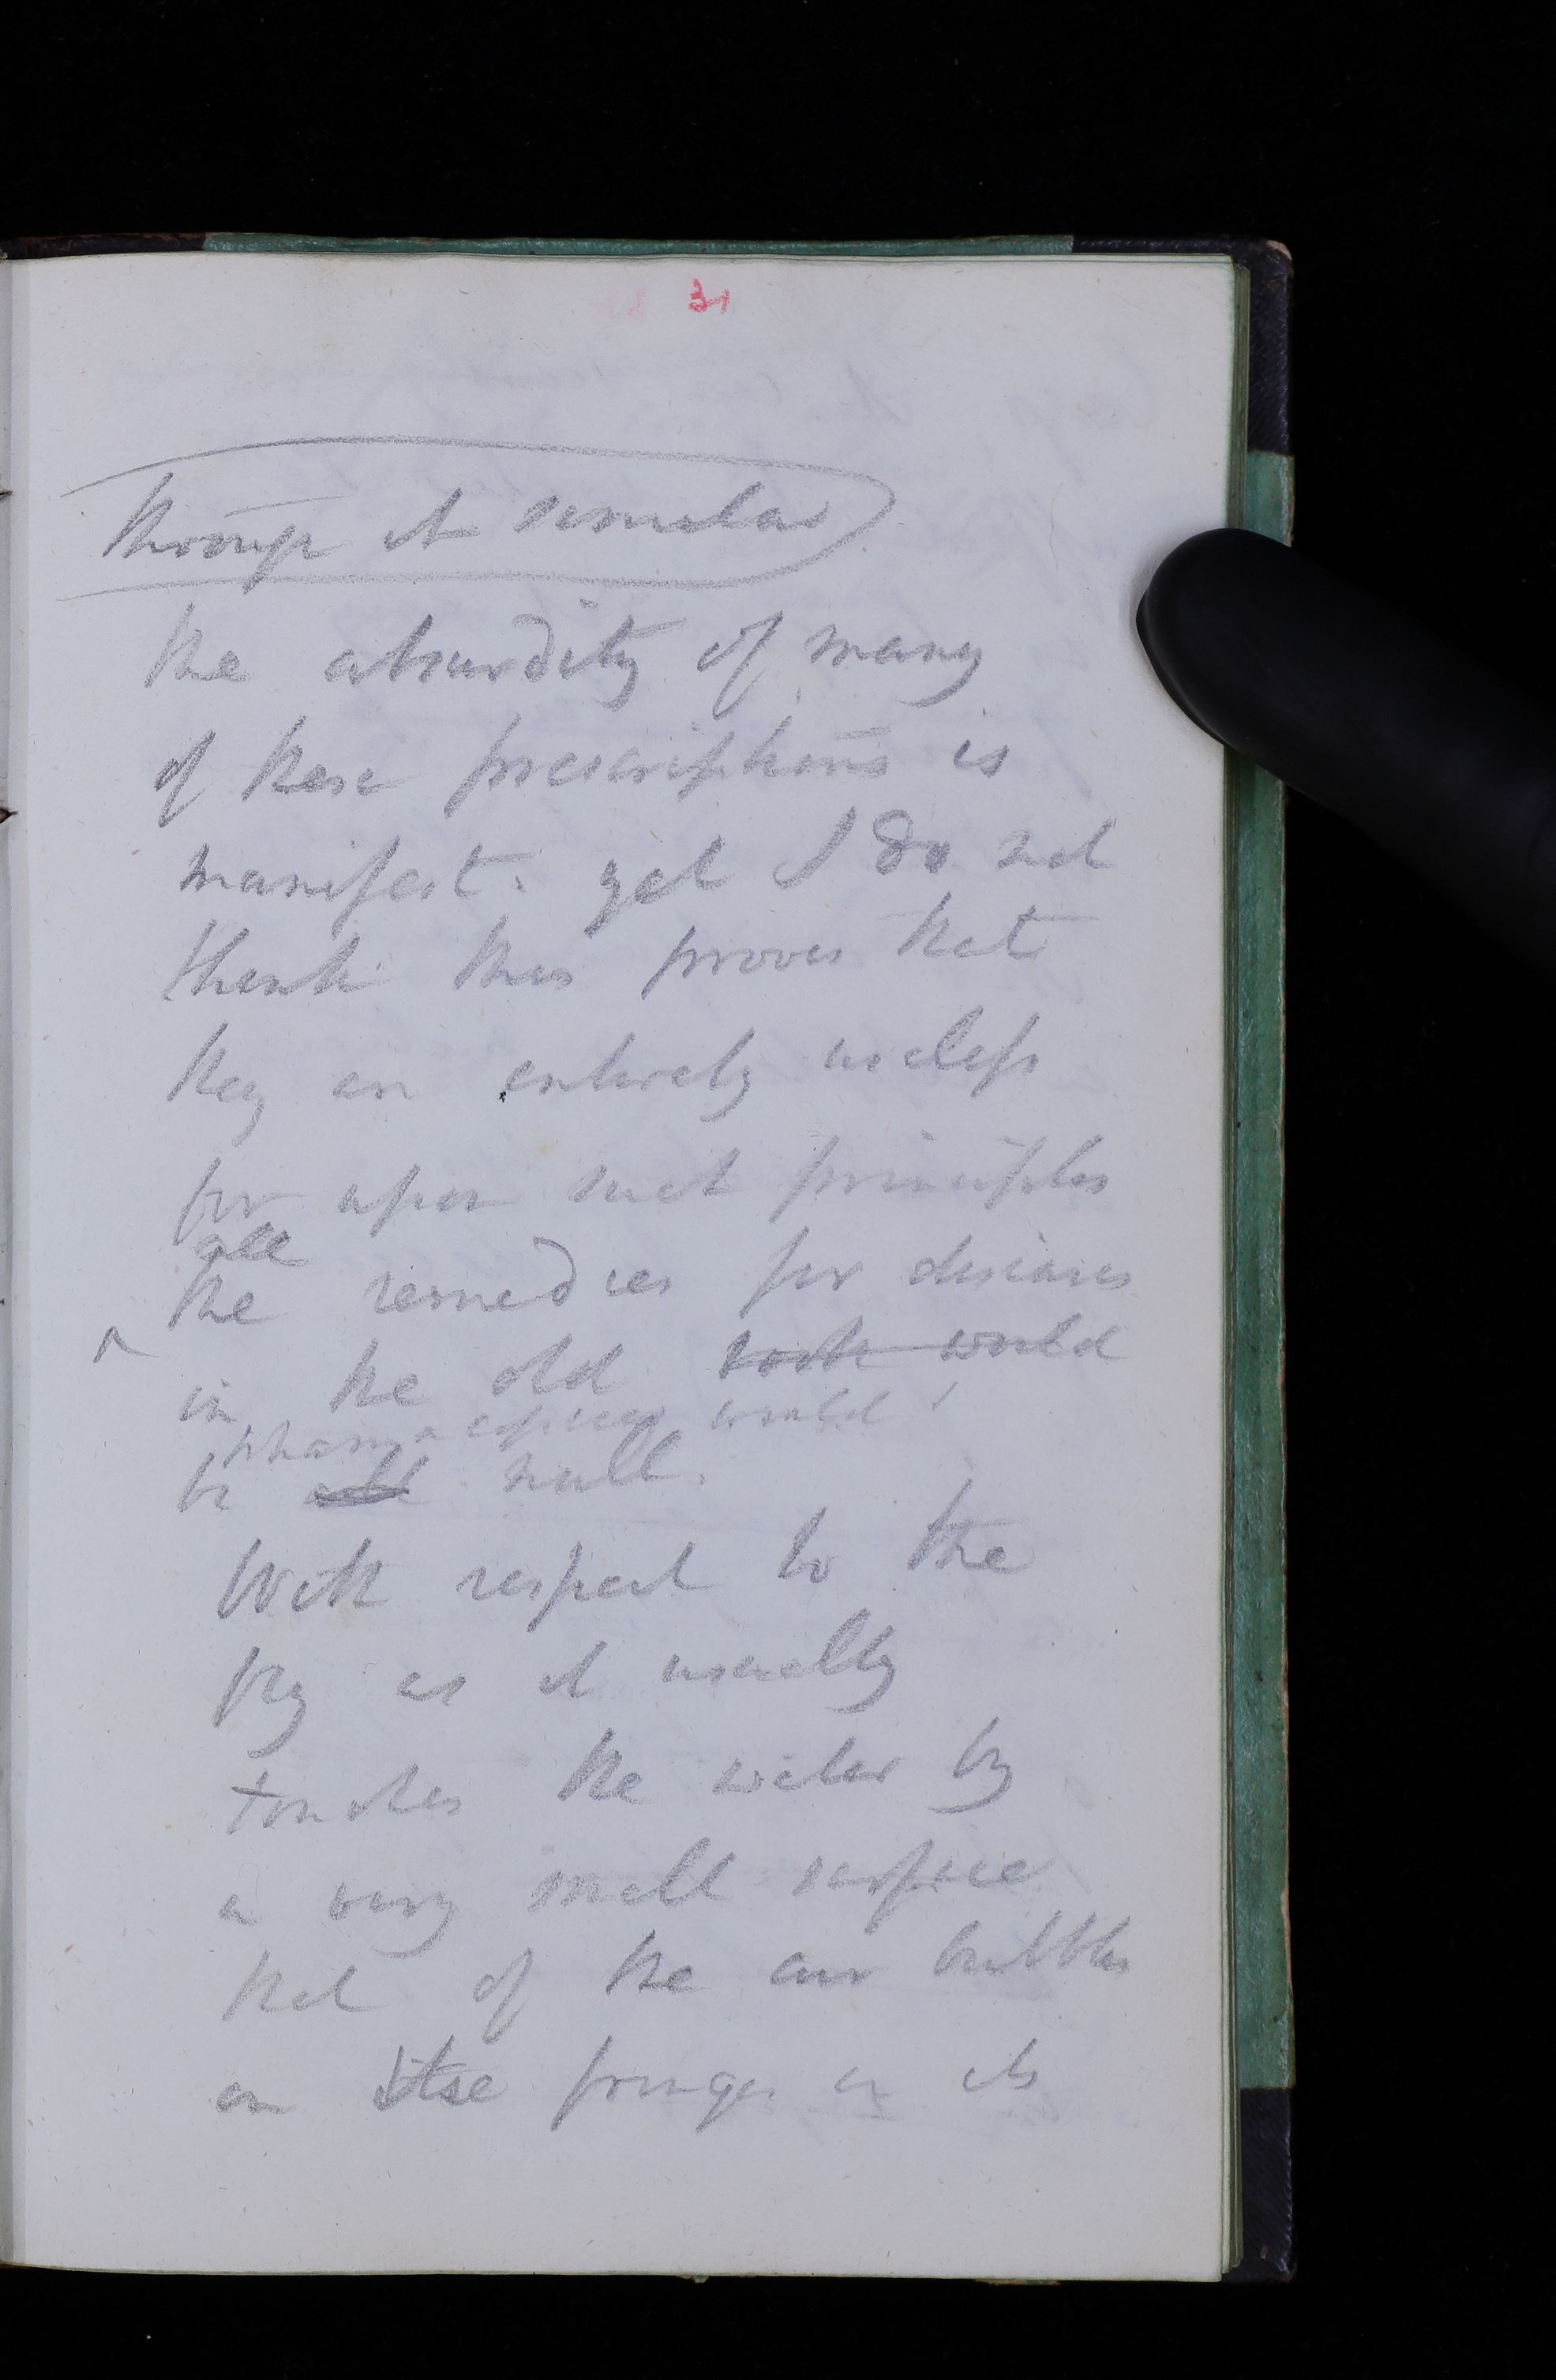 31
through it similar
the absurdity of many
of these prescriptions is
manifest. yet I do not
think this proves that
they are entirely useless
for upon such principles
all
the remedies for diseases
^
in the old book would
pharmacopoeias would
be all null.
With respect to the
fly as it usually
touches the water by
a very small surface
that of the air bubbles
on fringes or its